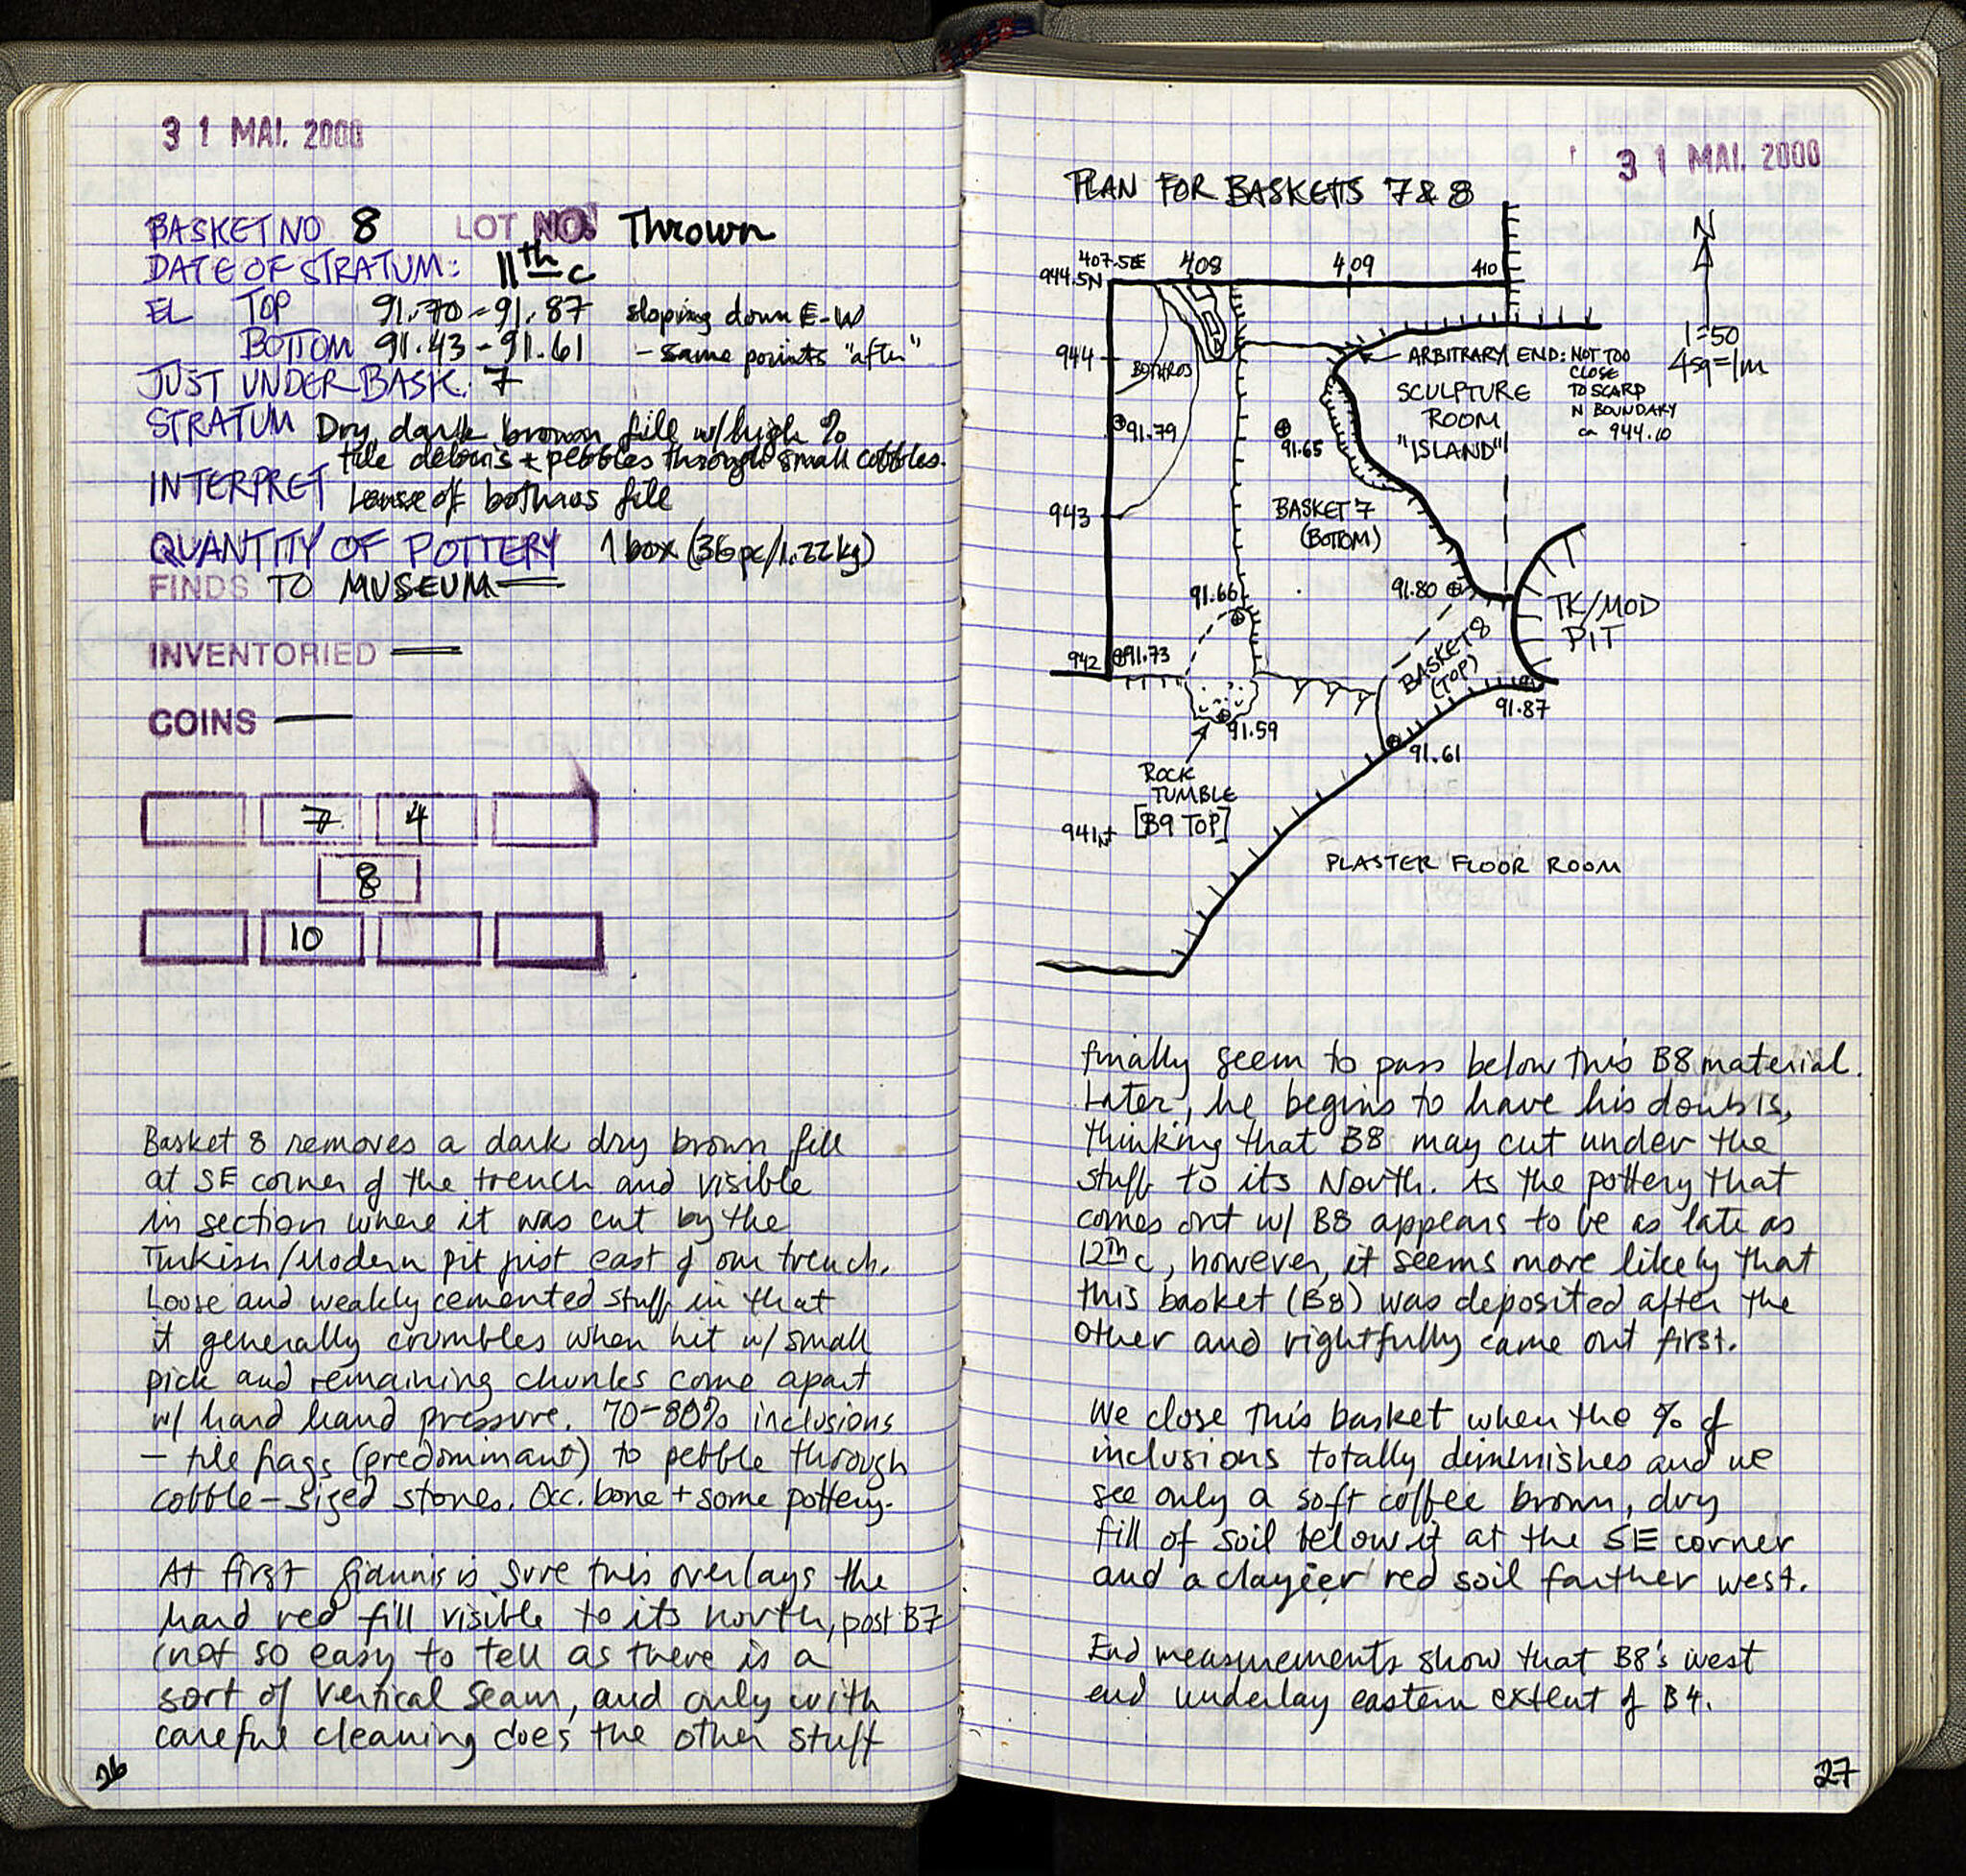 31 MAI. 2000
BASKET NO 8 LOT NO. Thrown
DATE OF STRATUM: 11th c
EL TOP 91.70-91.87 sloping down E-W
BOTTOM 91.43-91.61 - same points "after"
JUST UNDER BASK. 7
STRATUM Dry dark brown fill w/high %
tile debris + pebbles through small cobbles.
INTERPRET Lense of bothros fill
QUANTITY OF POTTERY 1 box (36pc/1.22kg)
FINDS TO MUSEUM —
INVENTORIED —
COINS —
7 4
8
10
Basket 8 removes a dark dry brown fill
at SE corner of the trench and visible
in section where it was cut by the
Turkish/Modern pit just east of our trench.
Loose and weakly cemented stuff in that
it generally crumbles when hit w/ small
pick and remaining chunks come apart
w/ hard hand pressure. 70-80% inclusions
- tile frags (predominant) to pebble through
cobble-sized stones. Occ. bone + some pottery.
At first Giannis is sure this overlays the
hard red fill visible to its north, post B7
(not so easy to tell as there is a
sort of vertical seam, and only with
careful cleaning does the other stuff
26
31 MAI. 2000
PLAN FOR BASKETS 7 & 8
N
407.5E 408 409 410
944.5N
1=50
4sq=1m
944
BOTHROS
ARBITRARY END: NOT TOO
CLOSE
TO SCARP
N BOUNDARY
ca 944.10
SCULPTURE
ROOM
"ISLAND"
91.79
91.65
943
BASKET 7
(BOTTOM)
91.66
91.80
TK/MOD
PIT
942
91.73
BASKET 8
(TOP)
91.87
91.59
91.61
ROCK
TUMBLE
[B9 TOP]
941N
PLASTER FLOOR ROOM
finally seem to pass below this B8 material.
Later, he begins to have his doubts,
thinking that B8 may cut under the
stuff to its North. As the pottery that
comes out w/ B8 appears to be as late as
12th c, however, it seems more likely that
this basket (B8) was deposited after the
other and rightfully came out first.
We close this basket when the % of
inclusions totally diminishes and we
see only a soft coffee brown, dry
fill of soil below it at the SE corner
and a clayier red soil farther west.
End measurements show that B8's west
end underlay eastern extent of B4.
27